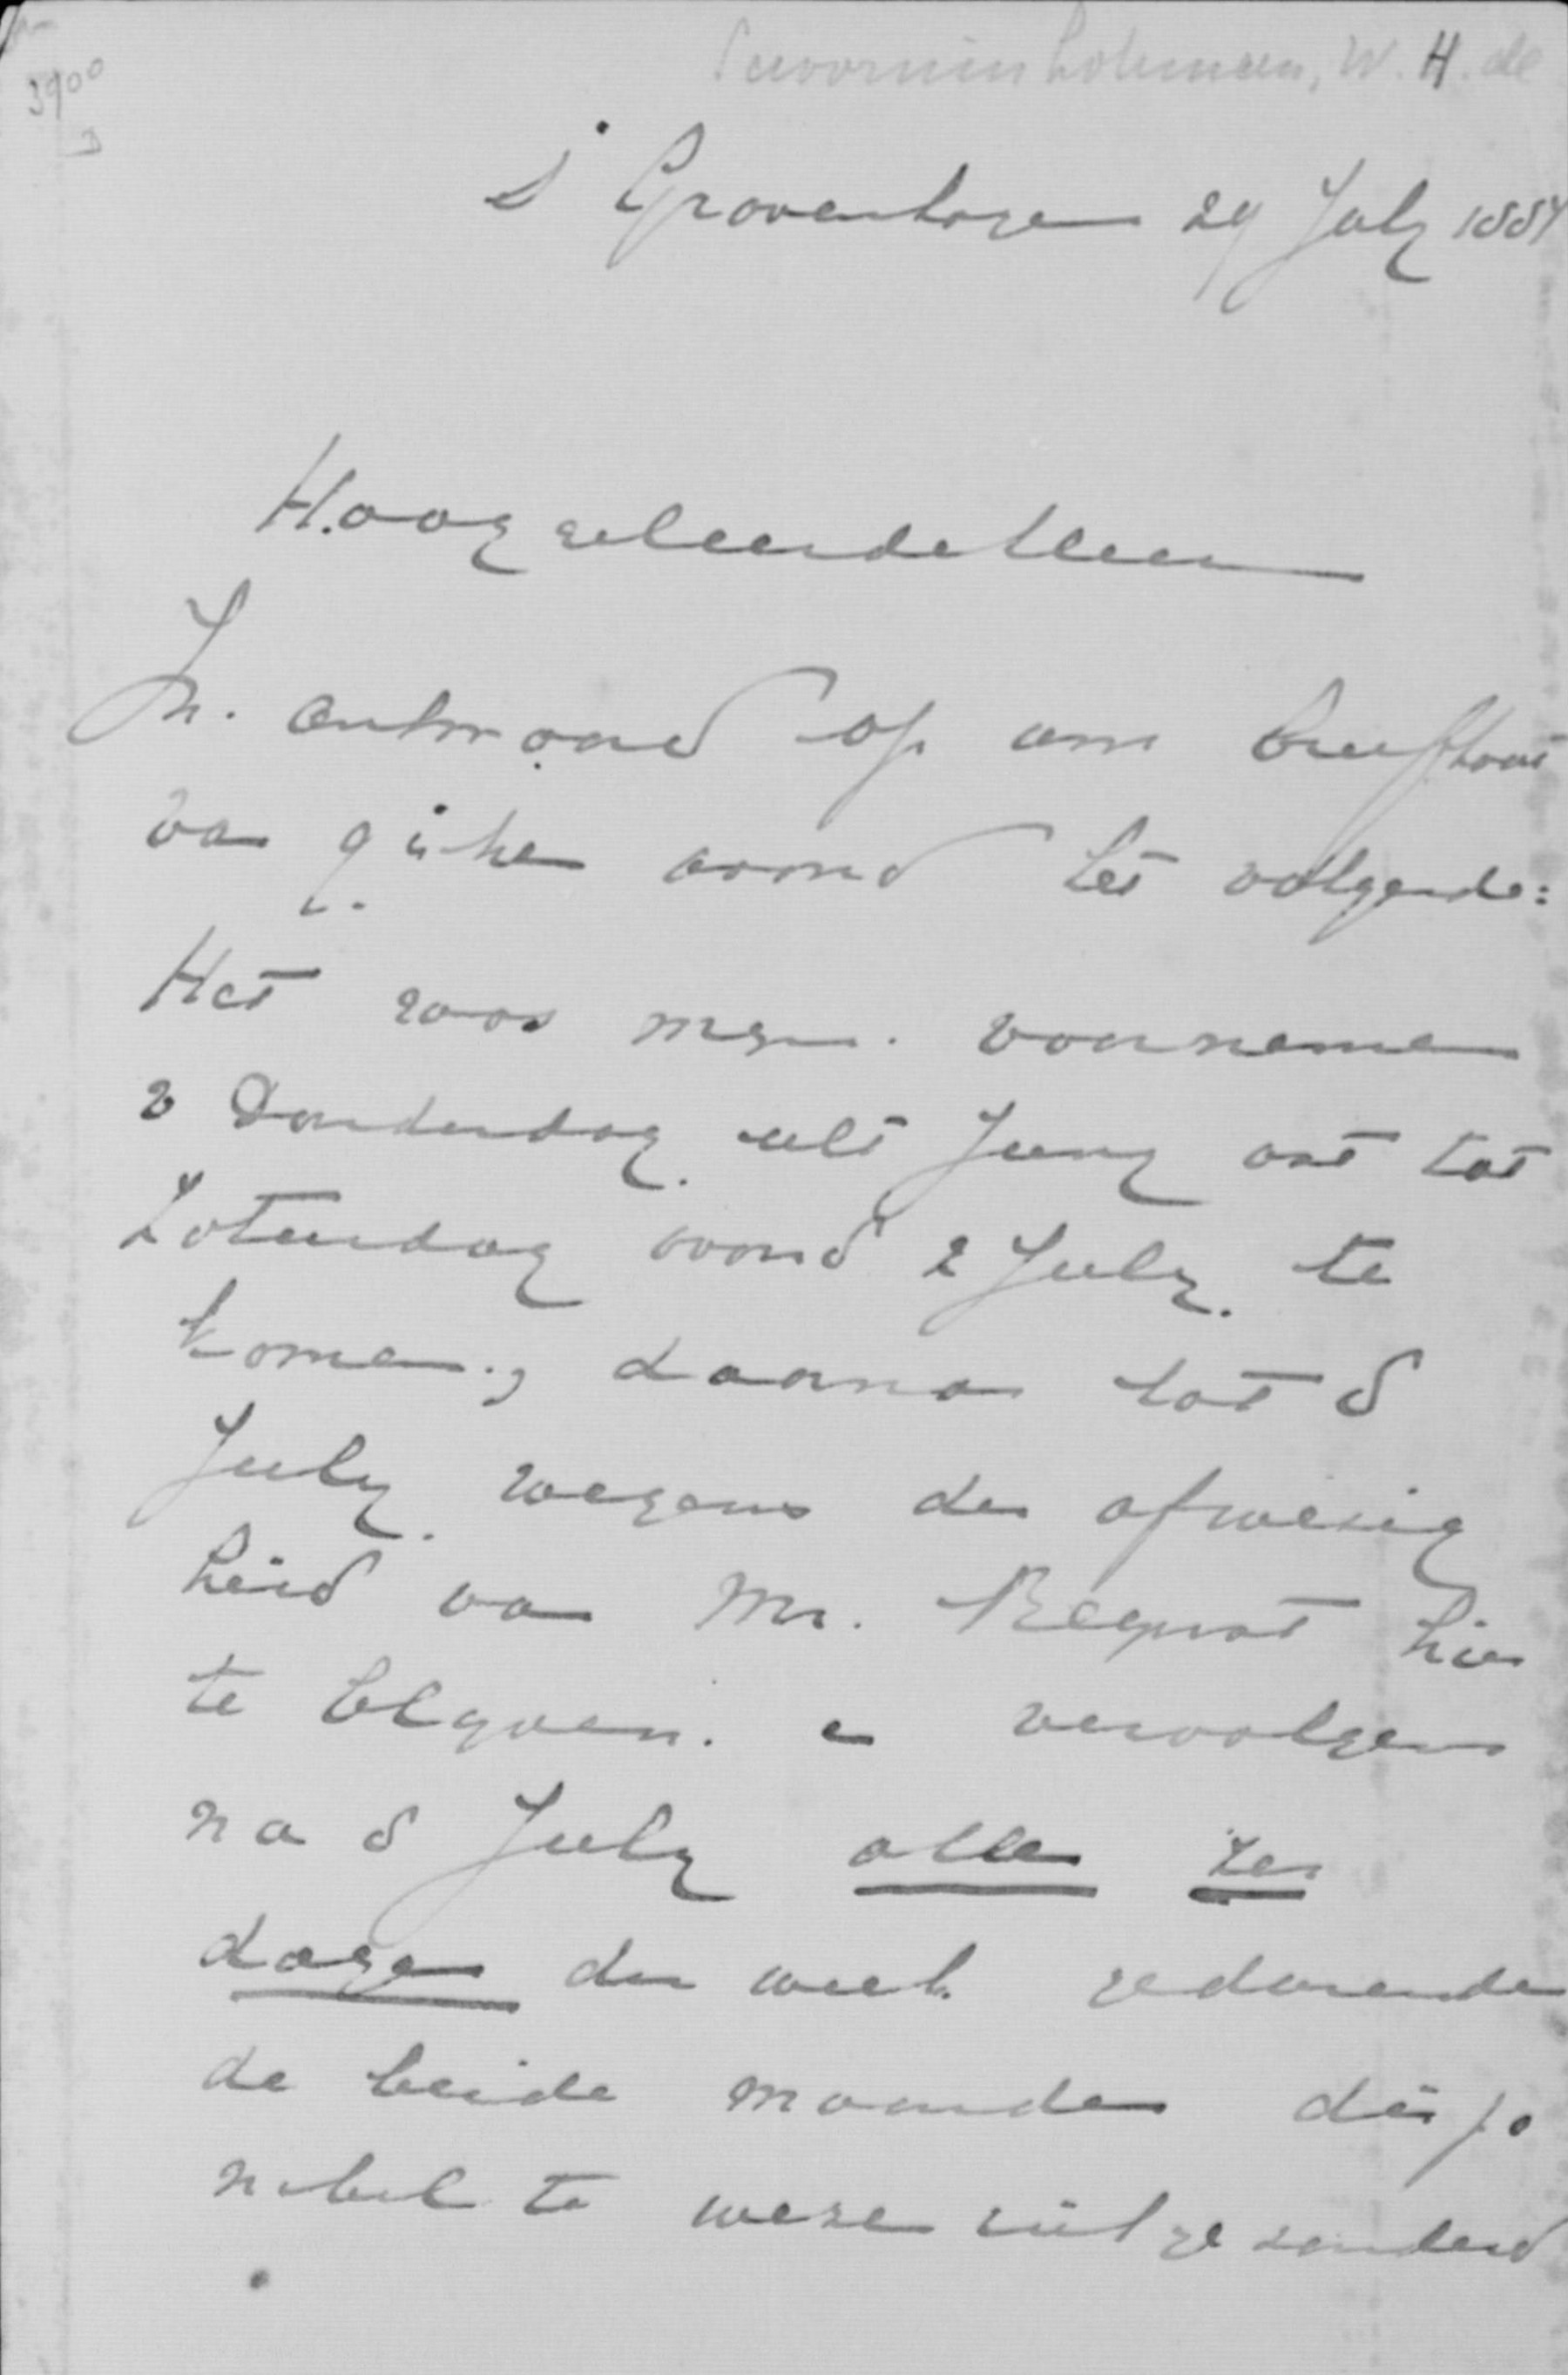 3900
D
Savornin Lohman, W. H. de
s' Gravenhage 29 July 1887
Hooggeleerde Heer
In antwoord op uw briefkaart
van gister avond het volgende:
Het was mijn voornemen
v Donderdag ult Juny tot
Zaturdag avond 2 July te
komen, daarna tot 8
July wegens de afwezig
heid van Mr. hier
te blijven. en vervolgens
na 8 July alle zes
dagen der week gedurende
de beide maanden dispo
nibel te weze uitgezonderd